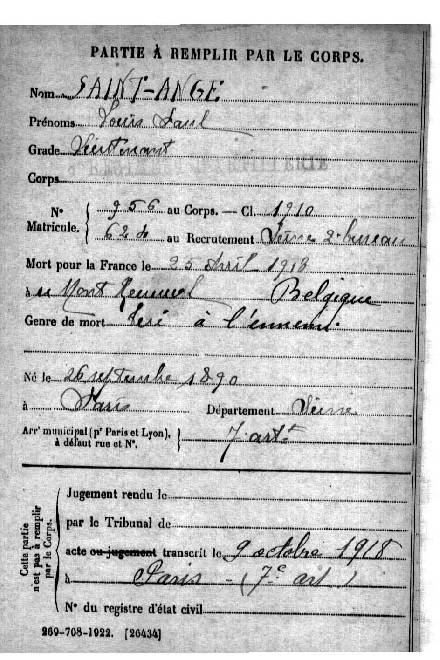 PARTIE À REMPLIR PAR LE CORPS.
Nom SAINT-ANGE
Prénoms Louis Paul
Grade Lieutenant
Corps
N° Matricule. { 956 au Corps. — Cl. 1910
624 au Recrutement Seine 2e bureau
Mort pour la France le 25 Avril 1918
à au Mont Belgique
Genre de mort Tué à l'ennemi.
Né le 26 septembre 1890
à Paris Département Seine
Arrt municipal (pr Paris et Lyon), à défaut rue et N°. } 7 artt
Cette partie n'est pas à remplir par le Corps.
Jugement rendu le
par le Tribunal de
acte ou jugement transcrit le 9 octobre 1918
à Paris - (7e art)
N° du registre d'état civil
269-708-1922. [26434]